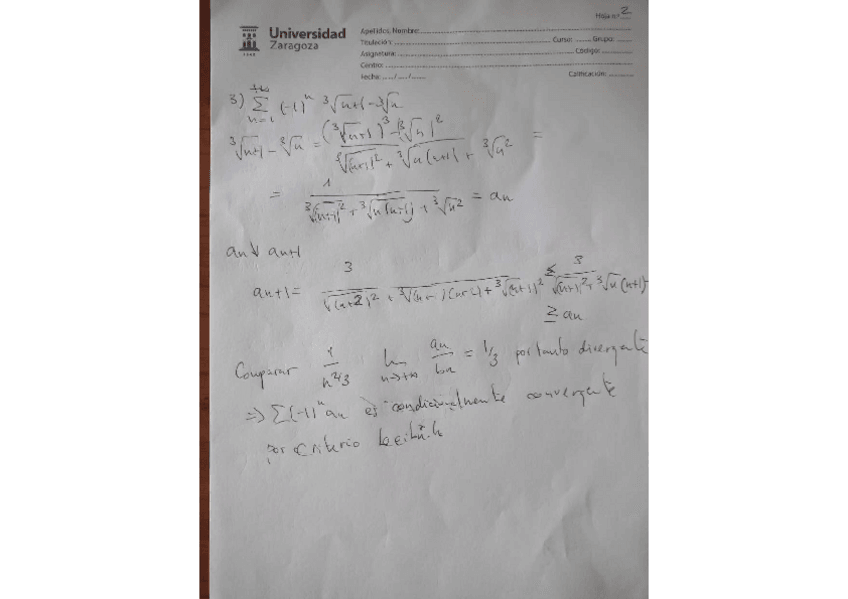 Hoja nº 2
Universidad
Zaragoza
Apellidos, Nombre:
Titulación: Curso: Grupo:
Asignatura: Código:
Centro:
Fecha: / / Calificación:
3) ∑_{n=1}^{+∞} (-1)^n ∛n+1 - ∛n
∛n+1 - ∛n = (∛n+1)^3 - (∛n)^2 / ∛(n+1)^2 + ∛n(n+1) + ∛n^2 =
= 1 / ∛(n+1)^2 + ∛n(n+1) + ∛n^2 = an
an ↓ an+1
an+1 = 3 / √(n+2)^2 + ∛(n+1)(n+2) + ∛(n+1)^2 ≤ 3 / √(n+1)^2 + ∛n(n+1)
≥ an
Comparar 1/n^2/3 lim n→+∞ an/bn = 1/3 por tanto divergente
=> ∑(-1)^n an es condicionalmente convergente
por criterio